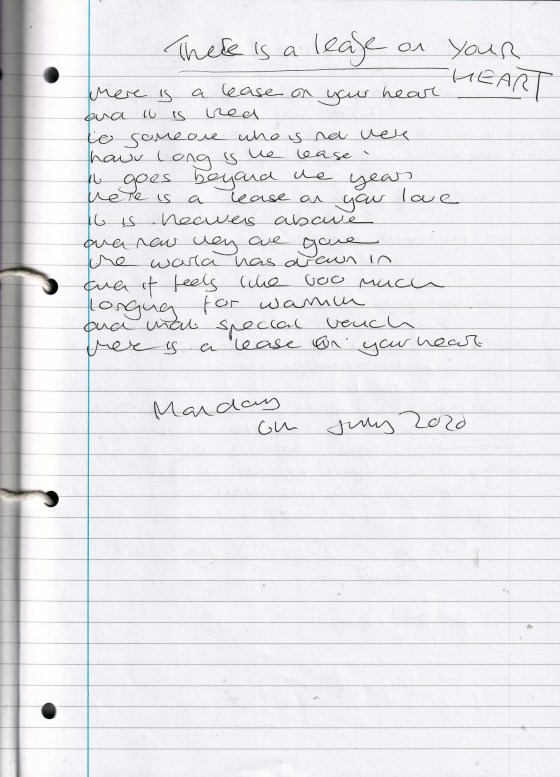 There is a lease on YOUR
HEART
there is a lease on your heart
and it is tied
to someone who is not here
how long is the lease
it goes beyond the years
there is a lease on your love
it is heavens above
and now they are gone
the world has drawn in
and it feels like too much
longing for warmth
and that special touch
there is a lease on your heart
Monday
6th July 2020